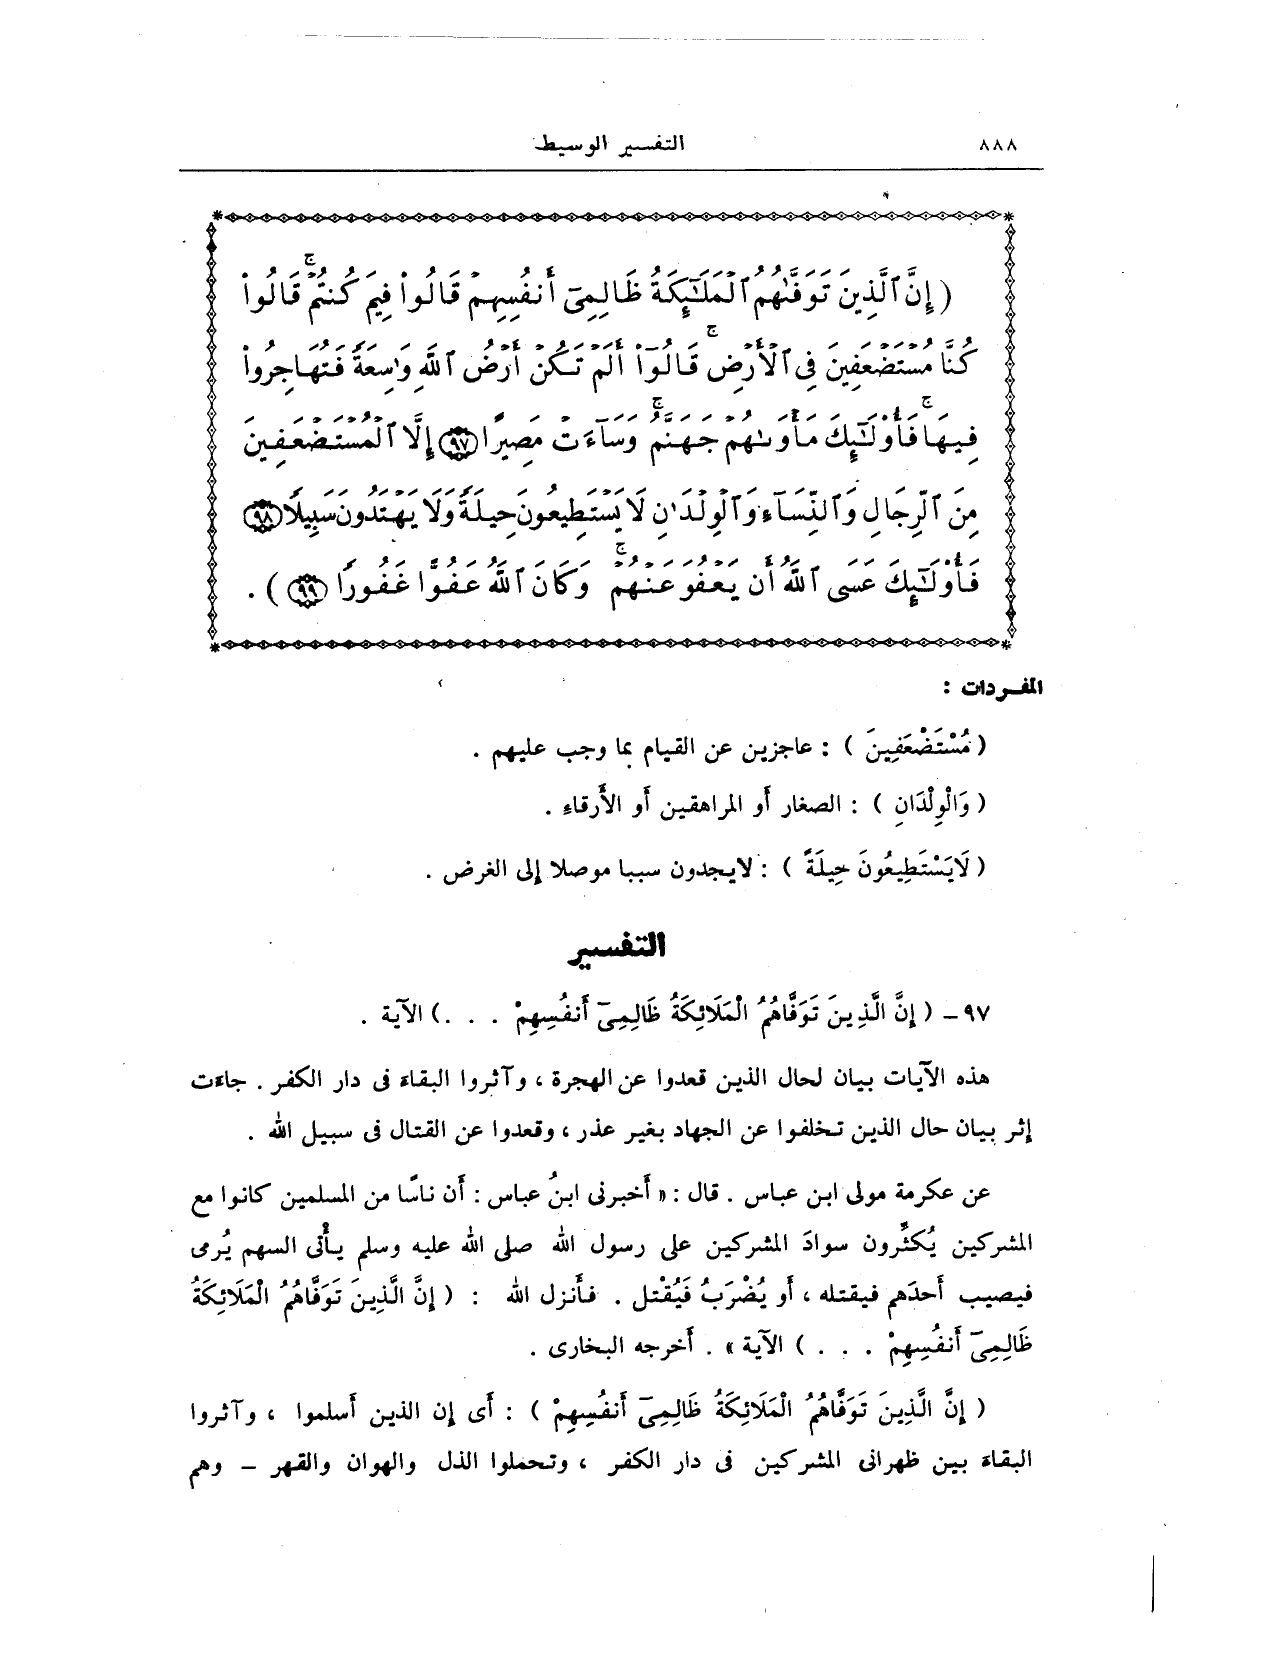 ٨٨٨
التفسير الوسيط
( إِنَّ ٱلَّذِينَ تَوَفَّىٰهُمُ ٱلْمَلَٰٓئِكَةُ ظَالِمِىٓ أَنفُسِهِمْ قَالُوا۟ فِيمَ كُنتُمْ ۖ قَالُوا۟
كُنَّا مُسْتَضْعَفِينَ فِى ٱلْأَرْضِ ۚ قَالُوٓا۟ أَلَمْ تَكُنْ أَرْضُ ٱللَّهِ وَٰسِعَةً فَتُهَاجِرُوا۟
فِيهَا ۚ فَأُو۟لَٰٓئِكَ مَأْوَىٰهُمْ جَهَنَّمُ ۖ وَسَآءَتْ مَصِيرًا ٩٧ إِلَّا ٱلْمُسْتَضْعَفِينَ
مِنَ ٱلرِّجَالِ وَٱلنِّسَآءِ وَٱلْوِلْدَٰنِ لَا يَسْتَطِيعُونَ حِيلَةً وَلَا يَهْتَدُونَ سَبِيلًا ٩٨
فَأُو۟لَٰٓئِكَ عَسَى ٱللَّهُ أَن يَعْفُوَ عَنْهُمْ ۚ وَكَانَ ٱللَّهُ عَفُوًّا غَفُورًا ٩٩ ) .
المفردات :
( مُسْتَضْعَفِينَ ) : عاجزين عن القيام بما وجب عليهم .
( وَالْوِلْدَانِ ) : الصغار أو المراهقين أو الأَرقاء .
( لَايَسْتَطِيعُونَ حِيلَةً ) : لايجدون سببا موصلا إلى الغرض .
التفسير
٩٧ – ( إِنَّ الَّذِينَ تَوَفَّاهُمُ الْمَلَائِكَةُ ظَالِمِىٓ أَنفُسِهِمْ . . .) الآية .
هذه الآيات بيان لحال الذين قعدوا عن الهجرة ، وآثروا البقاءَ فى دار الكفر . جاءَت
إثر بيان حال الذين تخلفوا عن الجهاد بغير عذر ، وقعدوا عن القتال فى سبيل الله .
عن عكرمة مولى ابن عباس . قال : « أَخبرنى ابنُ عباس : أَن ناسًا من المسلمين كانوا مع
المشركين يُكثِّرون سوادَ المشركين على رسول الله صلى الله عليه وسلم يأْتى السهم يُرمى
فيصيب أَحدَهم فيقتله ، أَو يُضْرَبُ فَيُقْتل . فأَنزل الله : ( إِنَّ الَّذِينَ تَوَفَّاهُمُ الْمَلَائِكَةُ
ظَالِمِىٓ أَنفُسِهِمْ . . . ) الآية » . أَخرجه البخارى .
( إِنَّ الَّذِينَ تَوَفَّاهُمُ الْمَلَائِكَةُ ظَالِمِىٓ أَنفُسِهِمْ ) : أَى إن الذين أسلموا ، وآثروا
البقاءَ بين ظهرانى المشركين فى دار الكفر ، وتحملوا الذل والهوان والقهر – وهم